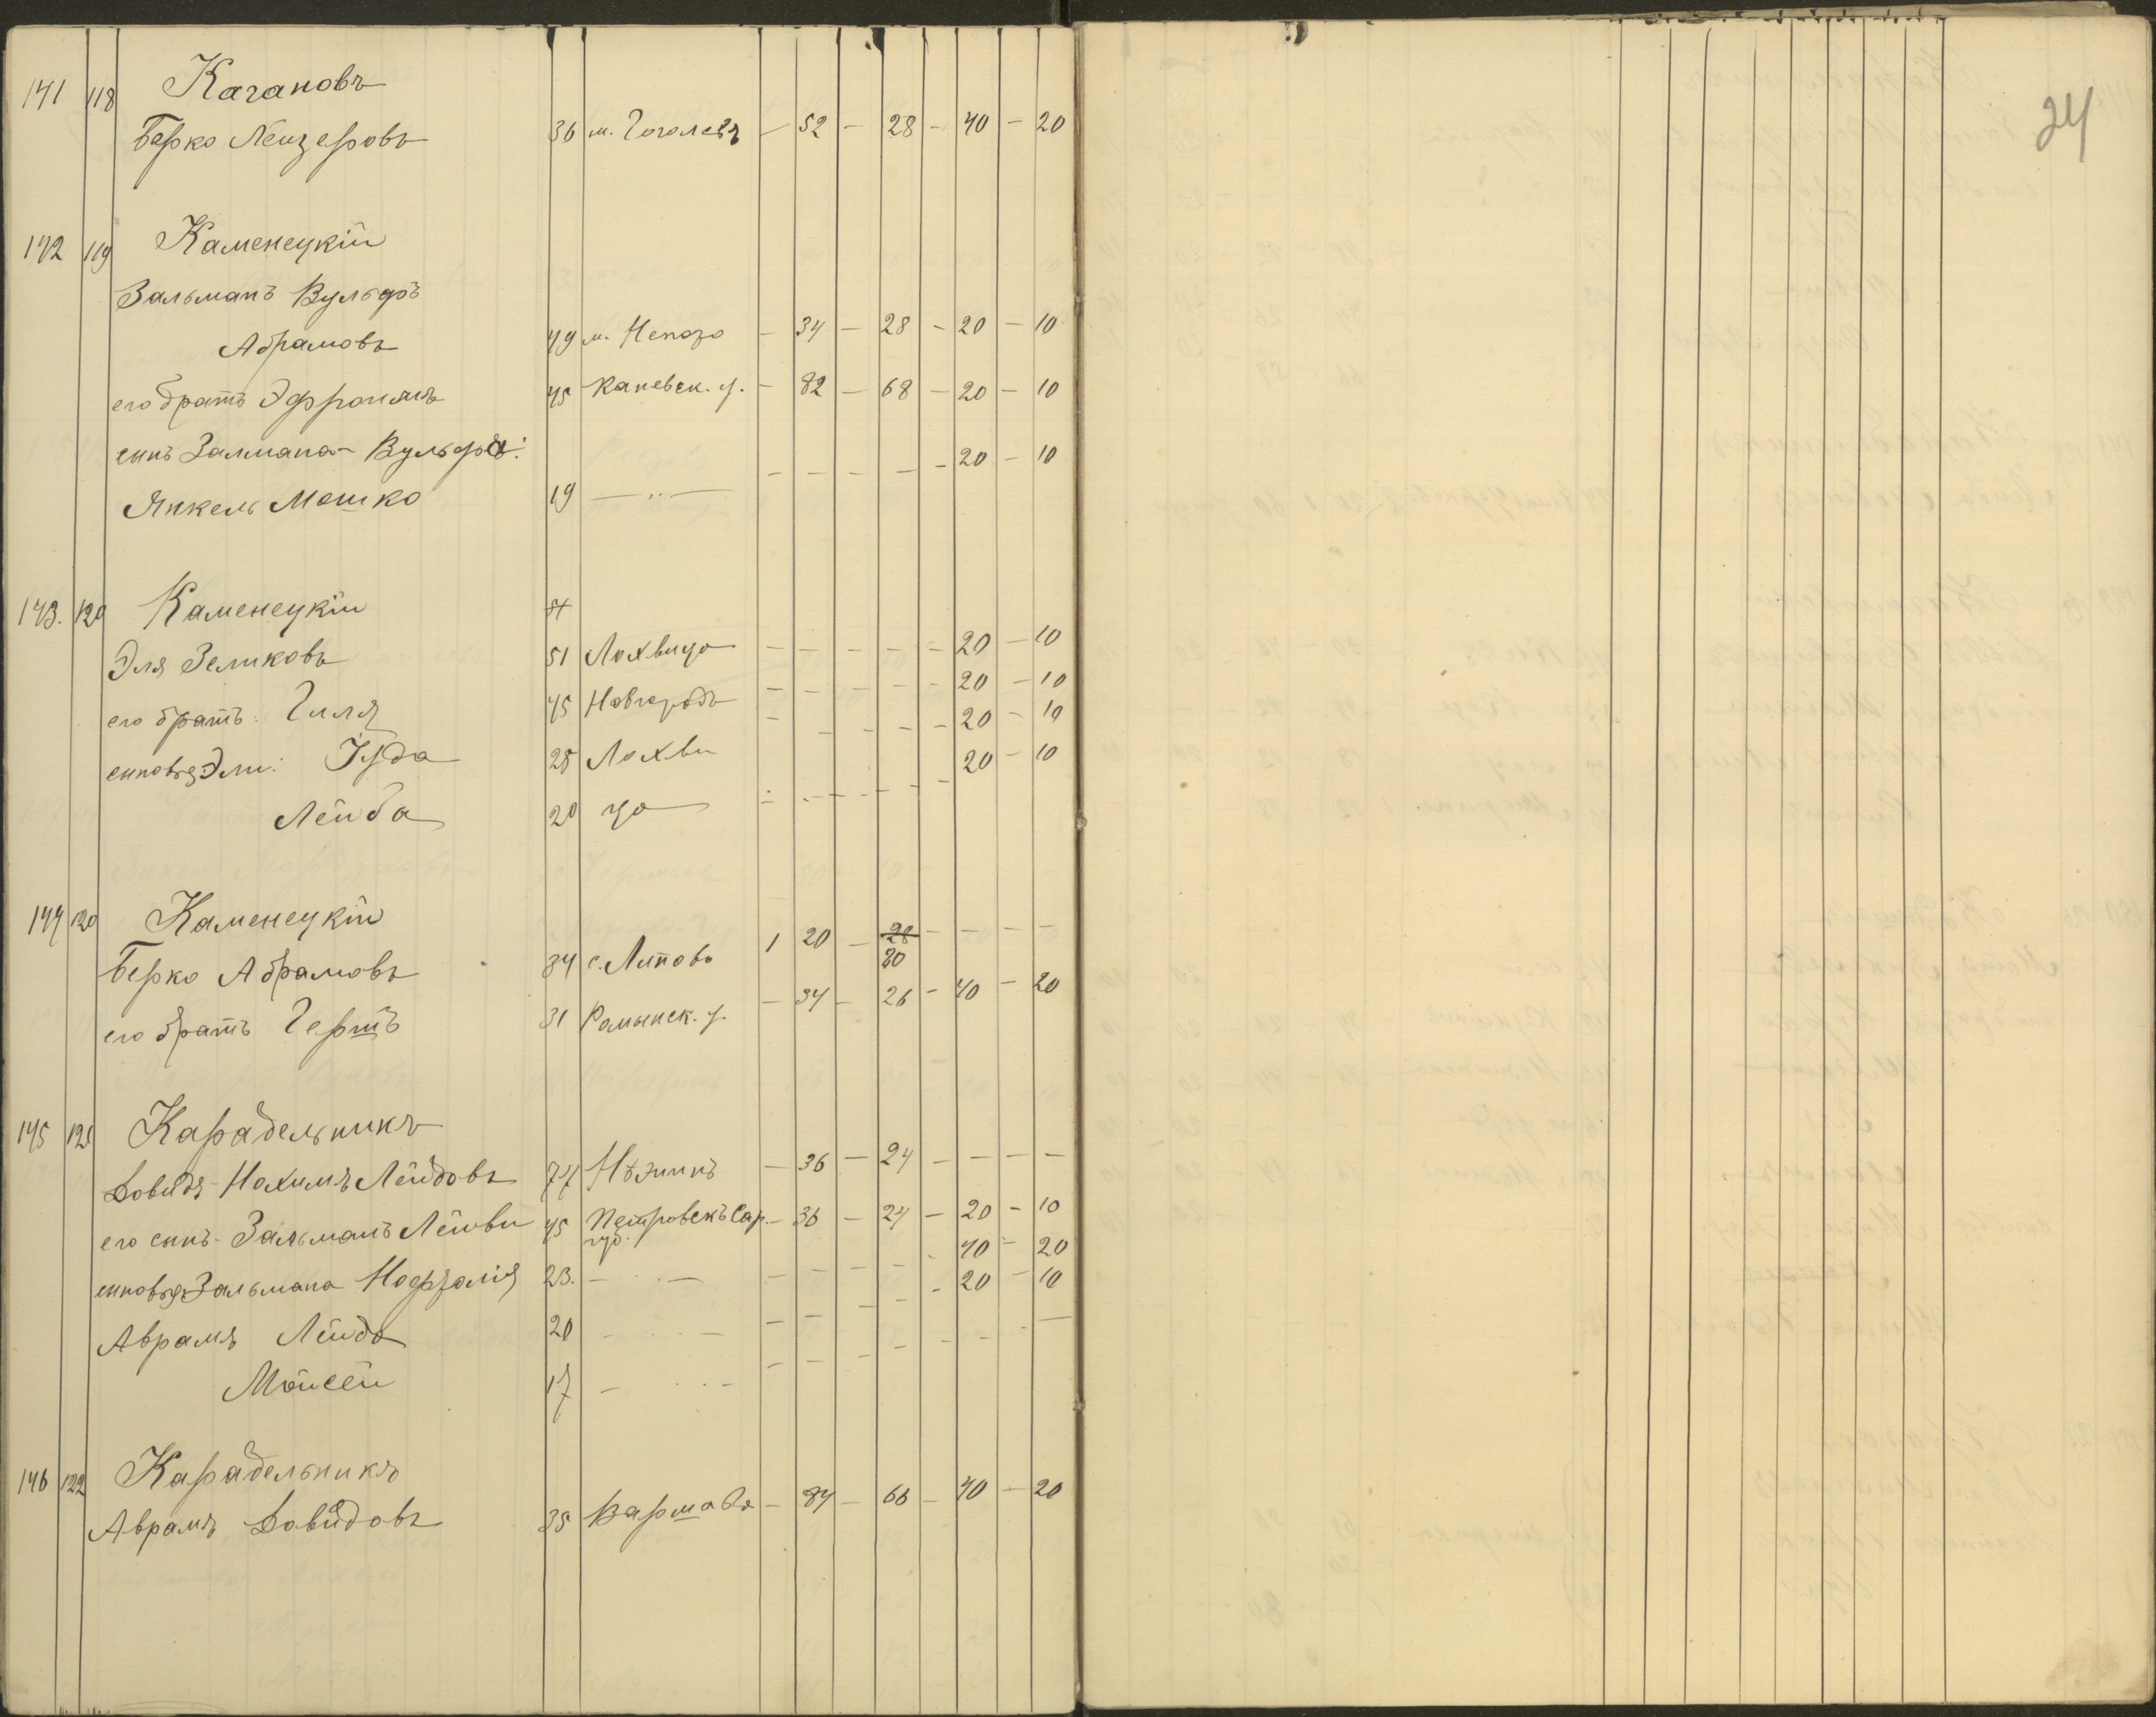 24
141 118 Кагановъ
Берко Лейзеровъ 36 м. Гоголевъ — 52 — 28 — 40 — 20
142 119 Каменецкій
Зальманъ Вульфъ
Абрамовъ 49 м. — 34 — 28 — 20 — 10
его братъ Эфроимъ 45 Каневск. у. — 82 — 68 — 20 — 10
сынъ Залмана-Вульфа: — — — — — 20 — 10
Янкель Мошко 19 — " —
143. 120 Каменецкій
Эля Зеликовъ 51 Лохвица — — — — — 20 — 10
его братъ: Гиля 45 Новгородъ — — — — — 20 — 10
сыновья Эли: Іуда 28 Лохви — — — — — 20 — 10
Лейба 20 ца — — — — — 20 — 10
144 120 Каменецкій
Берко Абрамовъ 34 с. Липово 1 20 — 28 — — — —
80
его братъ Гершъ 31 Роменск. у. — 34 — 26 — 40 — 20
145 121 Карабельникъ
Довидъ-Нохимъ Лейбовъ 77 Нѣжинъ — 36 — 24 — — — —
его сынъ- Зальманъ Лейви 45 Петровскъ Сар. — 36 — 24 — 20 — 10
губ.
сыновья Зальмана Нафталія 23. — . — — — — — — 40 — 20
Аврамъ Лейба 20 — . — — — — — — 20 — 10
Мойсей 17 — . . — — — — — — — —
146 122 Карабельникъ
Аврамъ Довидовъ 35 Варшава — 84 — 66 — 40 — 20